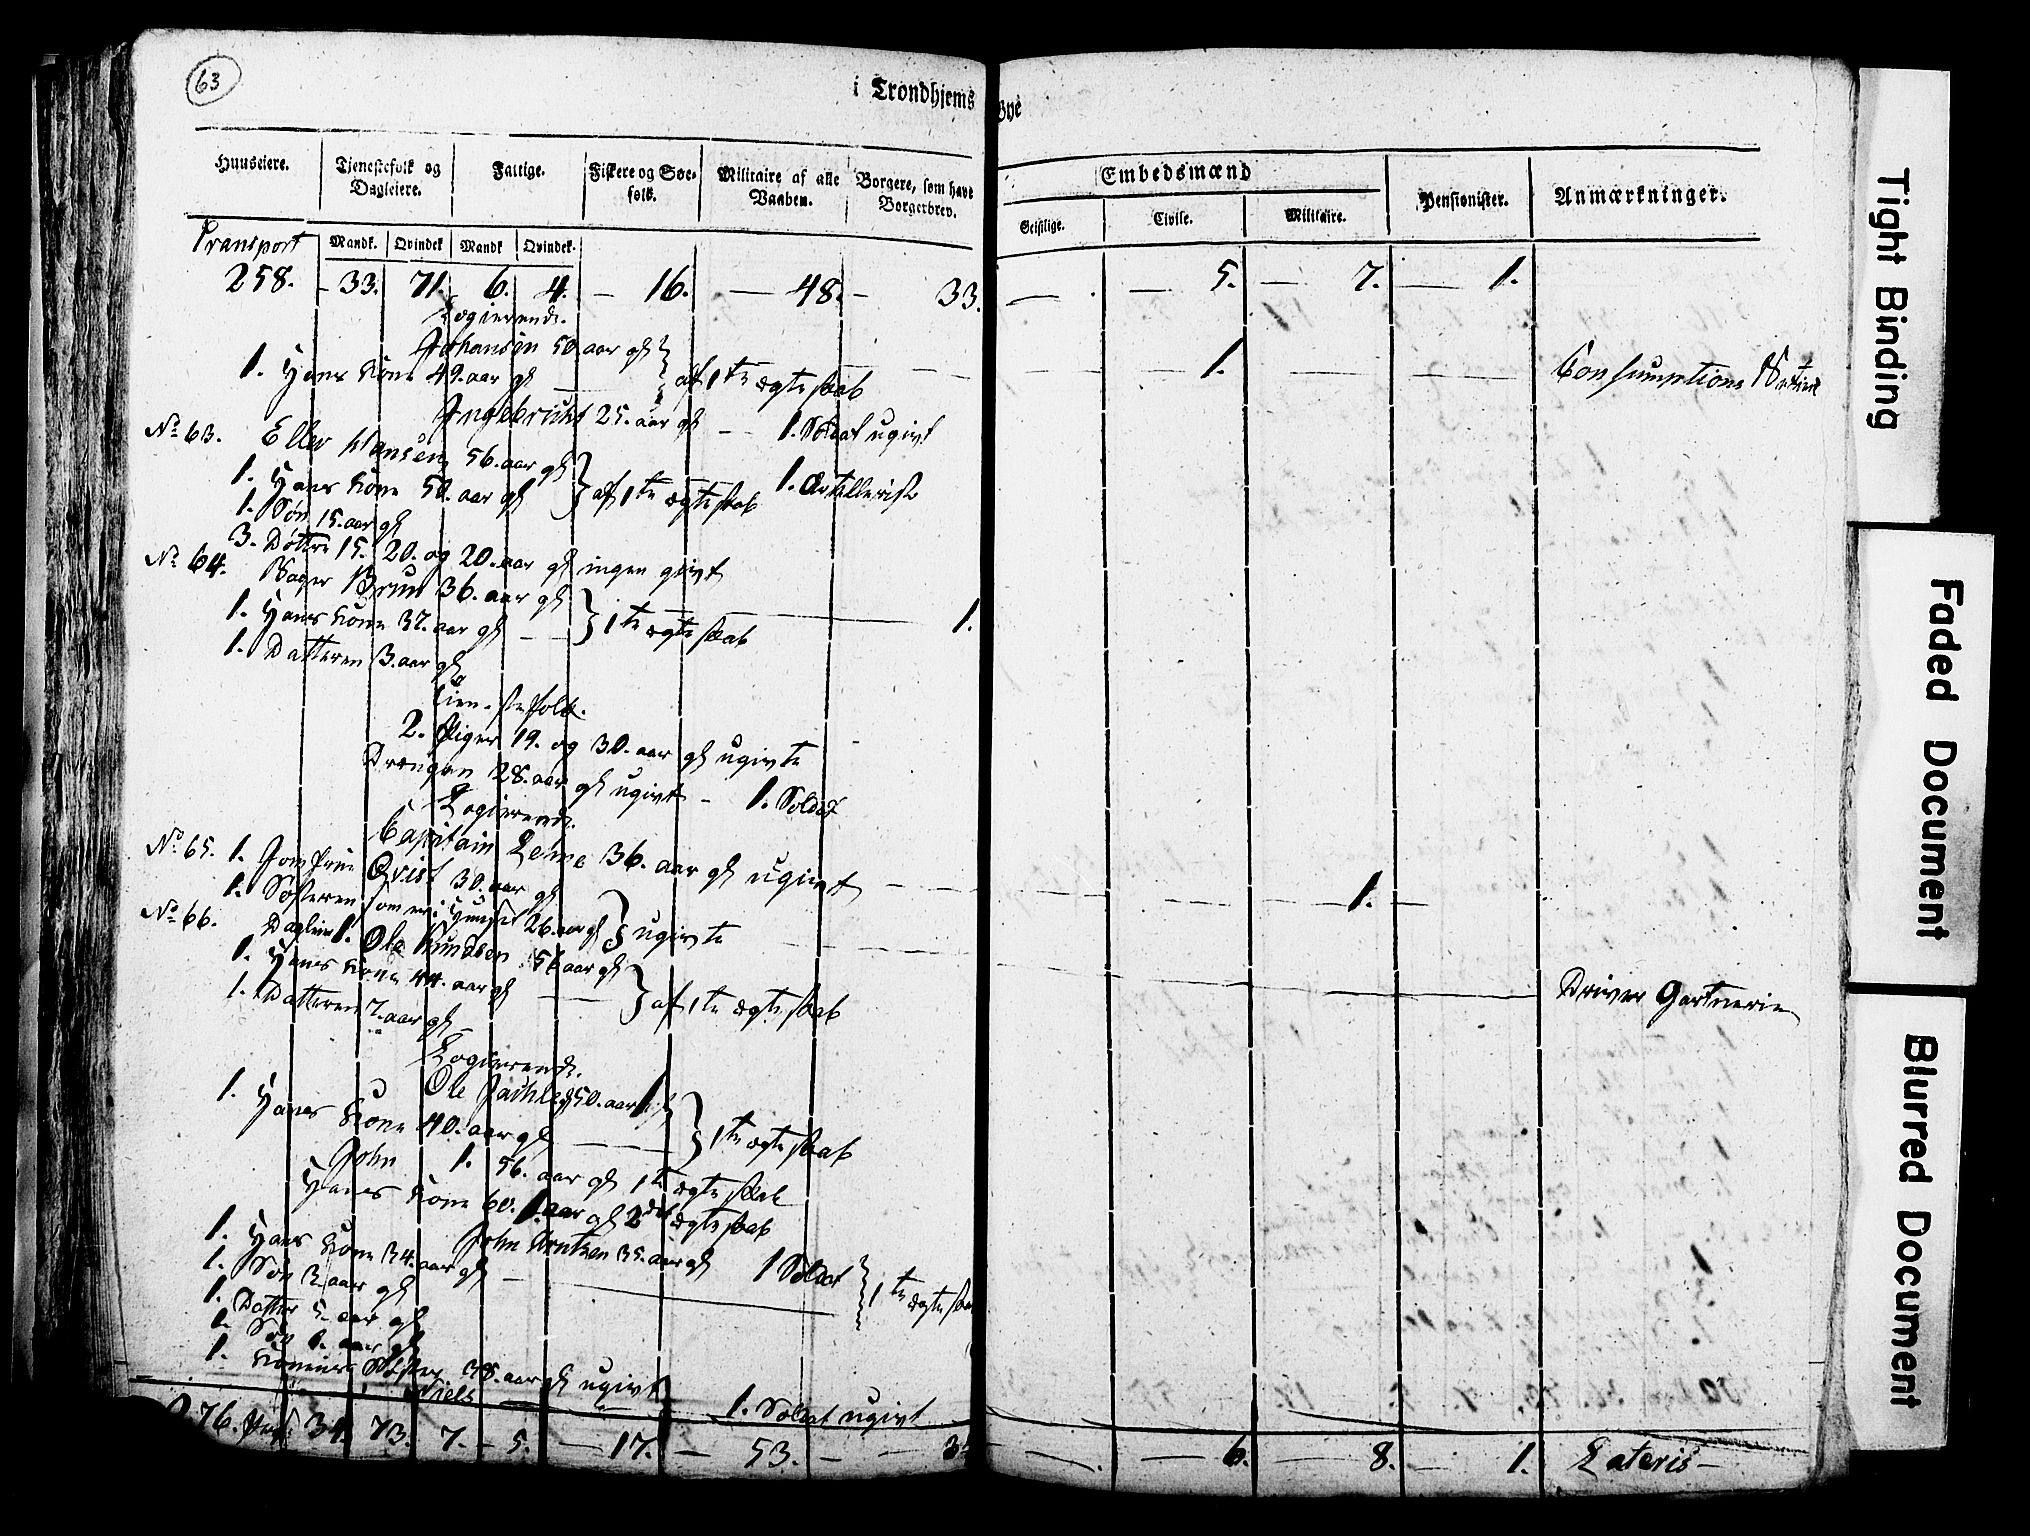 63
i Trondhjems Bye
Huuseiere. Tjenestefolk og Dagleiere. Fattige. Fiskere og Søefolk. Militaire af alle Vaaben. Borgere, som have Borgerbrev. Embedsmænd Pensionister. Anmærkninger.
Geistlige. Civile. Militaire.
Transport Mandk. Qvindek. Mandk. Qvindek.
258. 33. 71. 6. 4. 16. 48. 33. 5. 7. 1.
Logierende.
Johansen 50 aar gl
1. Hans Kone 49. aar gl af 1te ægteskab 1. Consumptions
Ingebricht 25. aar gl 1. Soldat ugivt
No 63. Eller Hansen 56. aar gl
1. Hans Kone 50. aar gl af 1te ægteskab 1. Artellerist
1. Søn 15. aar gl
3. Døttre 15. 20. og 20. aar gl ingen givt
No 64. Bager Brun 36. aar gl
1. Hans Kone 37. aar gl 1te ægteskab 1.
1. Datteren 3. aar gl
Tienestefolk.
2. Piger 19. og 30. aar gl ugivte
Drengen 28. aar gl ugivt 1. Soldat
Logierende.
Capitain Leme 36. aar gl ugivt 1.
No 65. 1. Jomfrue Qvist 30. aar gl
1. Søsteren som er i Huuset 26. aar gl ugivte
No 66. Dagleier 1. Ole Knudsen 56 aar gl
1. Hans Kone 44. aar gl af 1te ægteskab Driver Gartnerie
1. Datteren 7. aar gl
Logierende.
Ole 50. aar gl
1. Hans Kone 40. aar gl 1te ægteskab
John 1. 56. aar gl 1te ægteskab
Hans Kone 60. 1. aar gl 2det ægteskab
John Arntzen 35. aar gl 1 Soldat
1. Hans Kone 34. aar gl 1te ægteskab
1. Søn 3. aar gl
1. Datter 5. aar gl
1. Søn 6. aar gl
1. Konens Søster 38. aar gl ugivt
Niels 1. Soldat ugivt
276. 34. 73. 7. 5. 17. 53. 6. 8. 1. Lateris
Tight Binding
Faded Document
Blurred Document